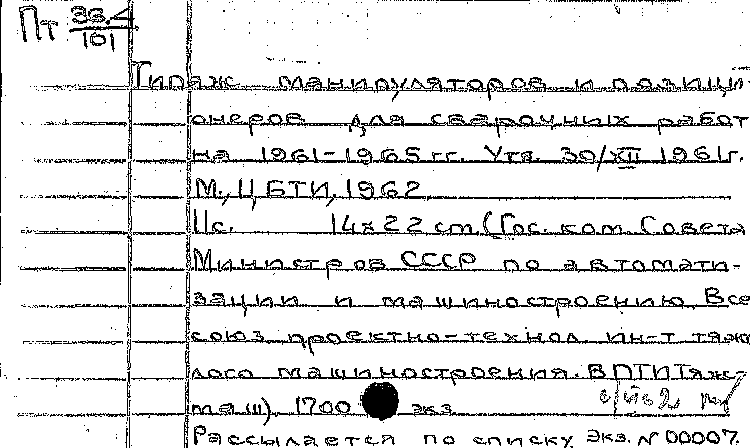 Пт 36.4
101
Типаж манипуляторов и позици-
онеров для сварочных работ
на 1961-1965 гг. Утв. 30/XII 1961г.
М., ЦБТИ, 1962
11с. 14x22 cm (Гос. ком. Совета
Министров СССР по автомати-
зации и машиностроению. Все
союз. проектно-технол. ин-т тяже
лого машиностроения. ВПТИТяж-
маш). 1700 экз
Рассылается по списку экз. № 00007.